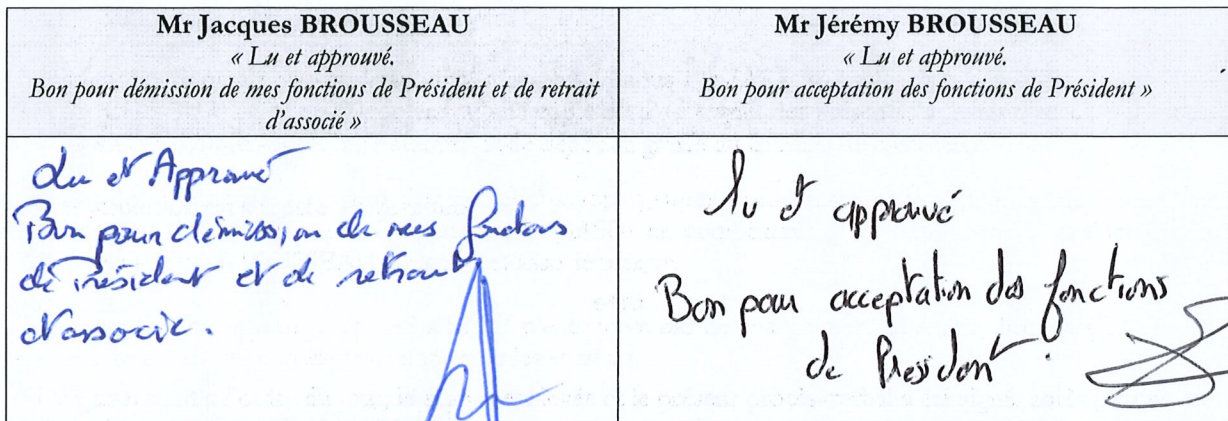 Mr Jacques BROUSSEAU
« Lu et approuvé.
Bon pour démission de mes fonctions de Président et de retrait
d'associé »
Mr Jérémy BROUSSEAU
« Lu et approuvé.
Bon pour acceptation des fonctions de Président »
Lu et Approuvé
Bon pour démission de mes fonctions
de président et de retrait
d'associé.
lu et approuvé
Bon pour acceptation des fonctions
de President.